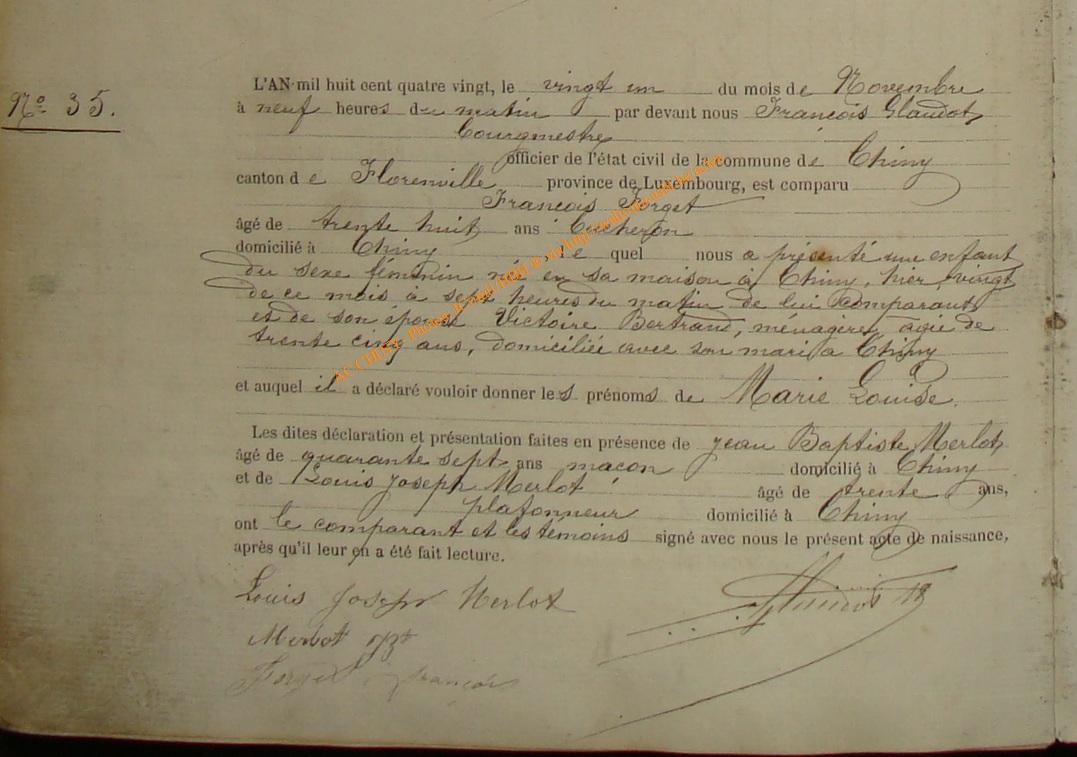 N° 35.
L'AN mil huit cent quatre vingt, le vingt un du mois de Novembre
à neuf heures du matin par devant nous François Glaudot,
Bourgmestre
officier de l'état civil de la commune de Chiny
canton de Florenville province de Luxembourg, est comparu
François Forget
âgé de trente huit ans bucheron
domicilié à Chiny, le quel nous a présenté une enfant
du sexe féminin né en sa maison à Chiny, hier vingt
de ce mois à sept heures du matin de lui comparant
et de son épouse Victoire Bertrand, ménagère, agée de
trente cinq ans, domiciliée avec son mari a Chiny
et auquel il a déclaré vouloir donner les prénoms de Marie Louise.
Les dites déclaration et présentation faites en présence de Jean Baptiste Merlot,
âgé de quarante sept ans maçon domicilié à Chiny
et de Louis Joseph Merlot âgé de trente ans,
plafonneur domicilié à Chiny
ont le comparant et les témoins signé avec nous le présent acte de naissance,
après qu'il leur en a été fait lecture.
Louis Joseph Merlot
Merlot
Forget françois